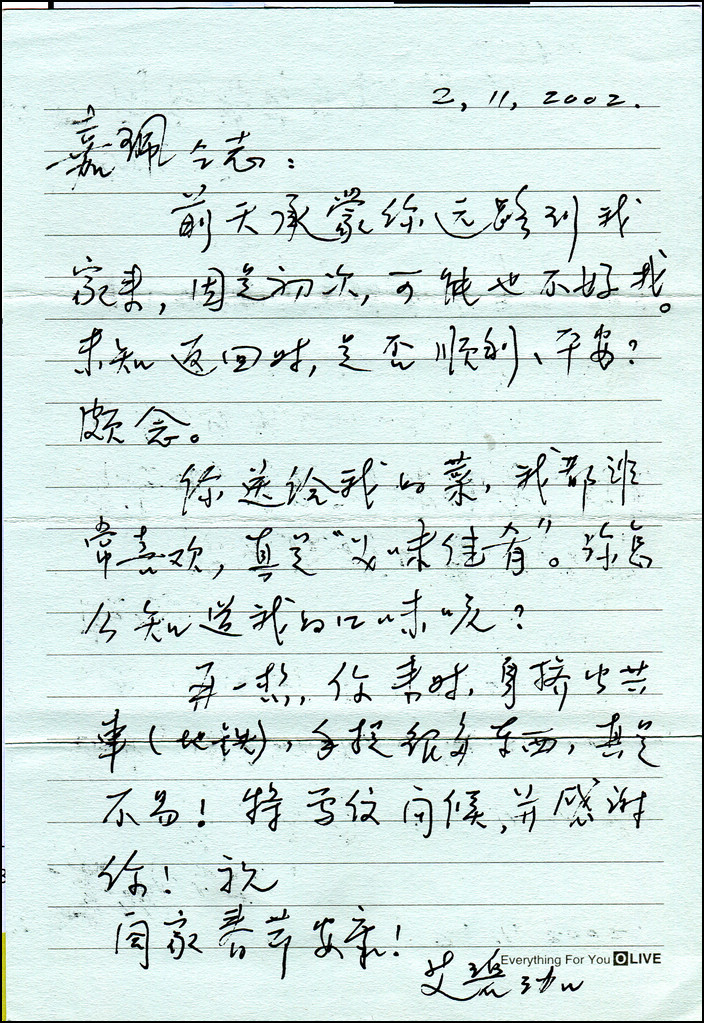 2, 11, 2002.
嘉珮同志：
前天承蒙你远路到我
家来，因是初次，可能也不好找。
未知返回时，是否顺利、平安？
颇念。
你送给我的菜，我都非
常喜欢，真是“美味佳肴”。你怎
么知道我的口味呢？
再一想，你来时，身挤公共
车（地铁），手提很多东西，真是
不易！特写信问候，并感谢
你！祝
阖家春节安康！
Everything For You OLIVE
艾碧